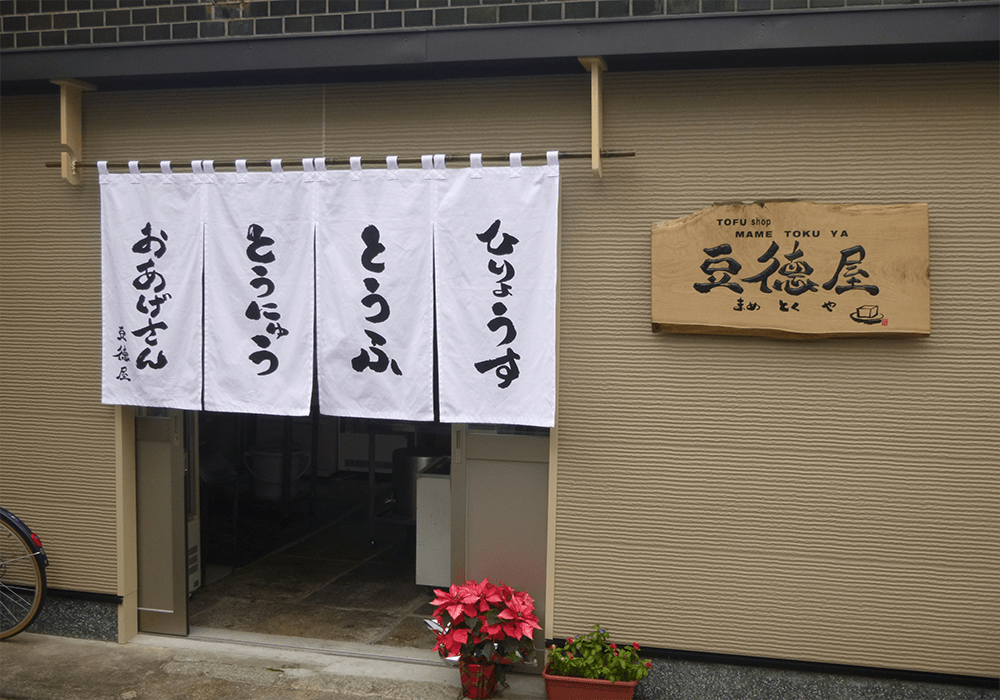 ひりょうす
とうふ
とうにゅう
おあげさん
豆徳屋
TOFU shop
MAME TOKU YA
豆徳屋
まめ とく や